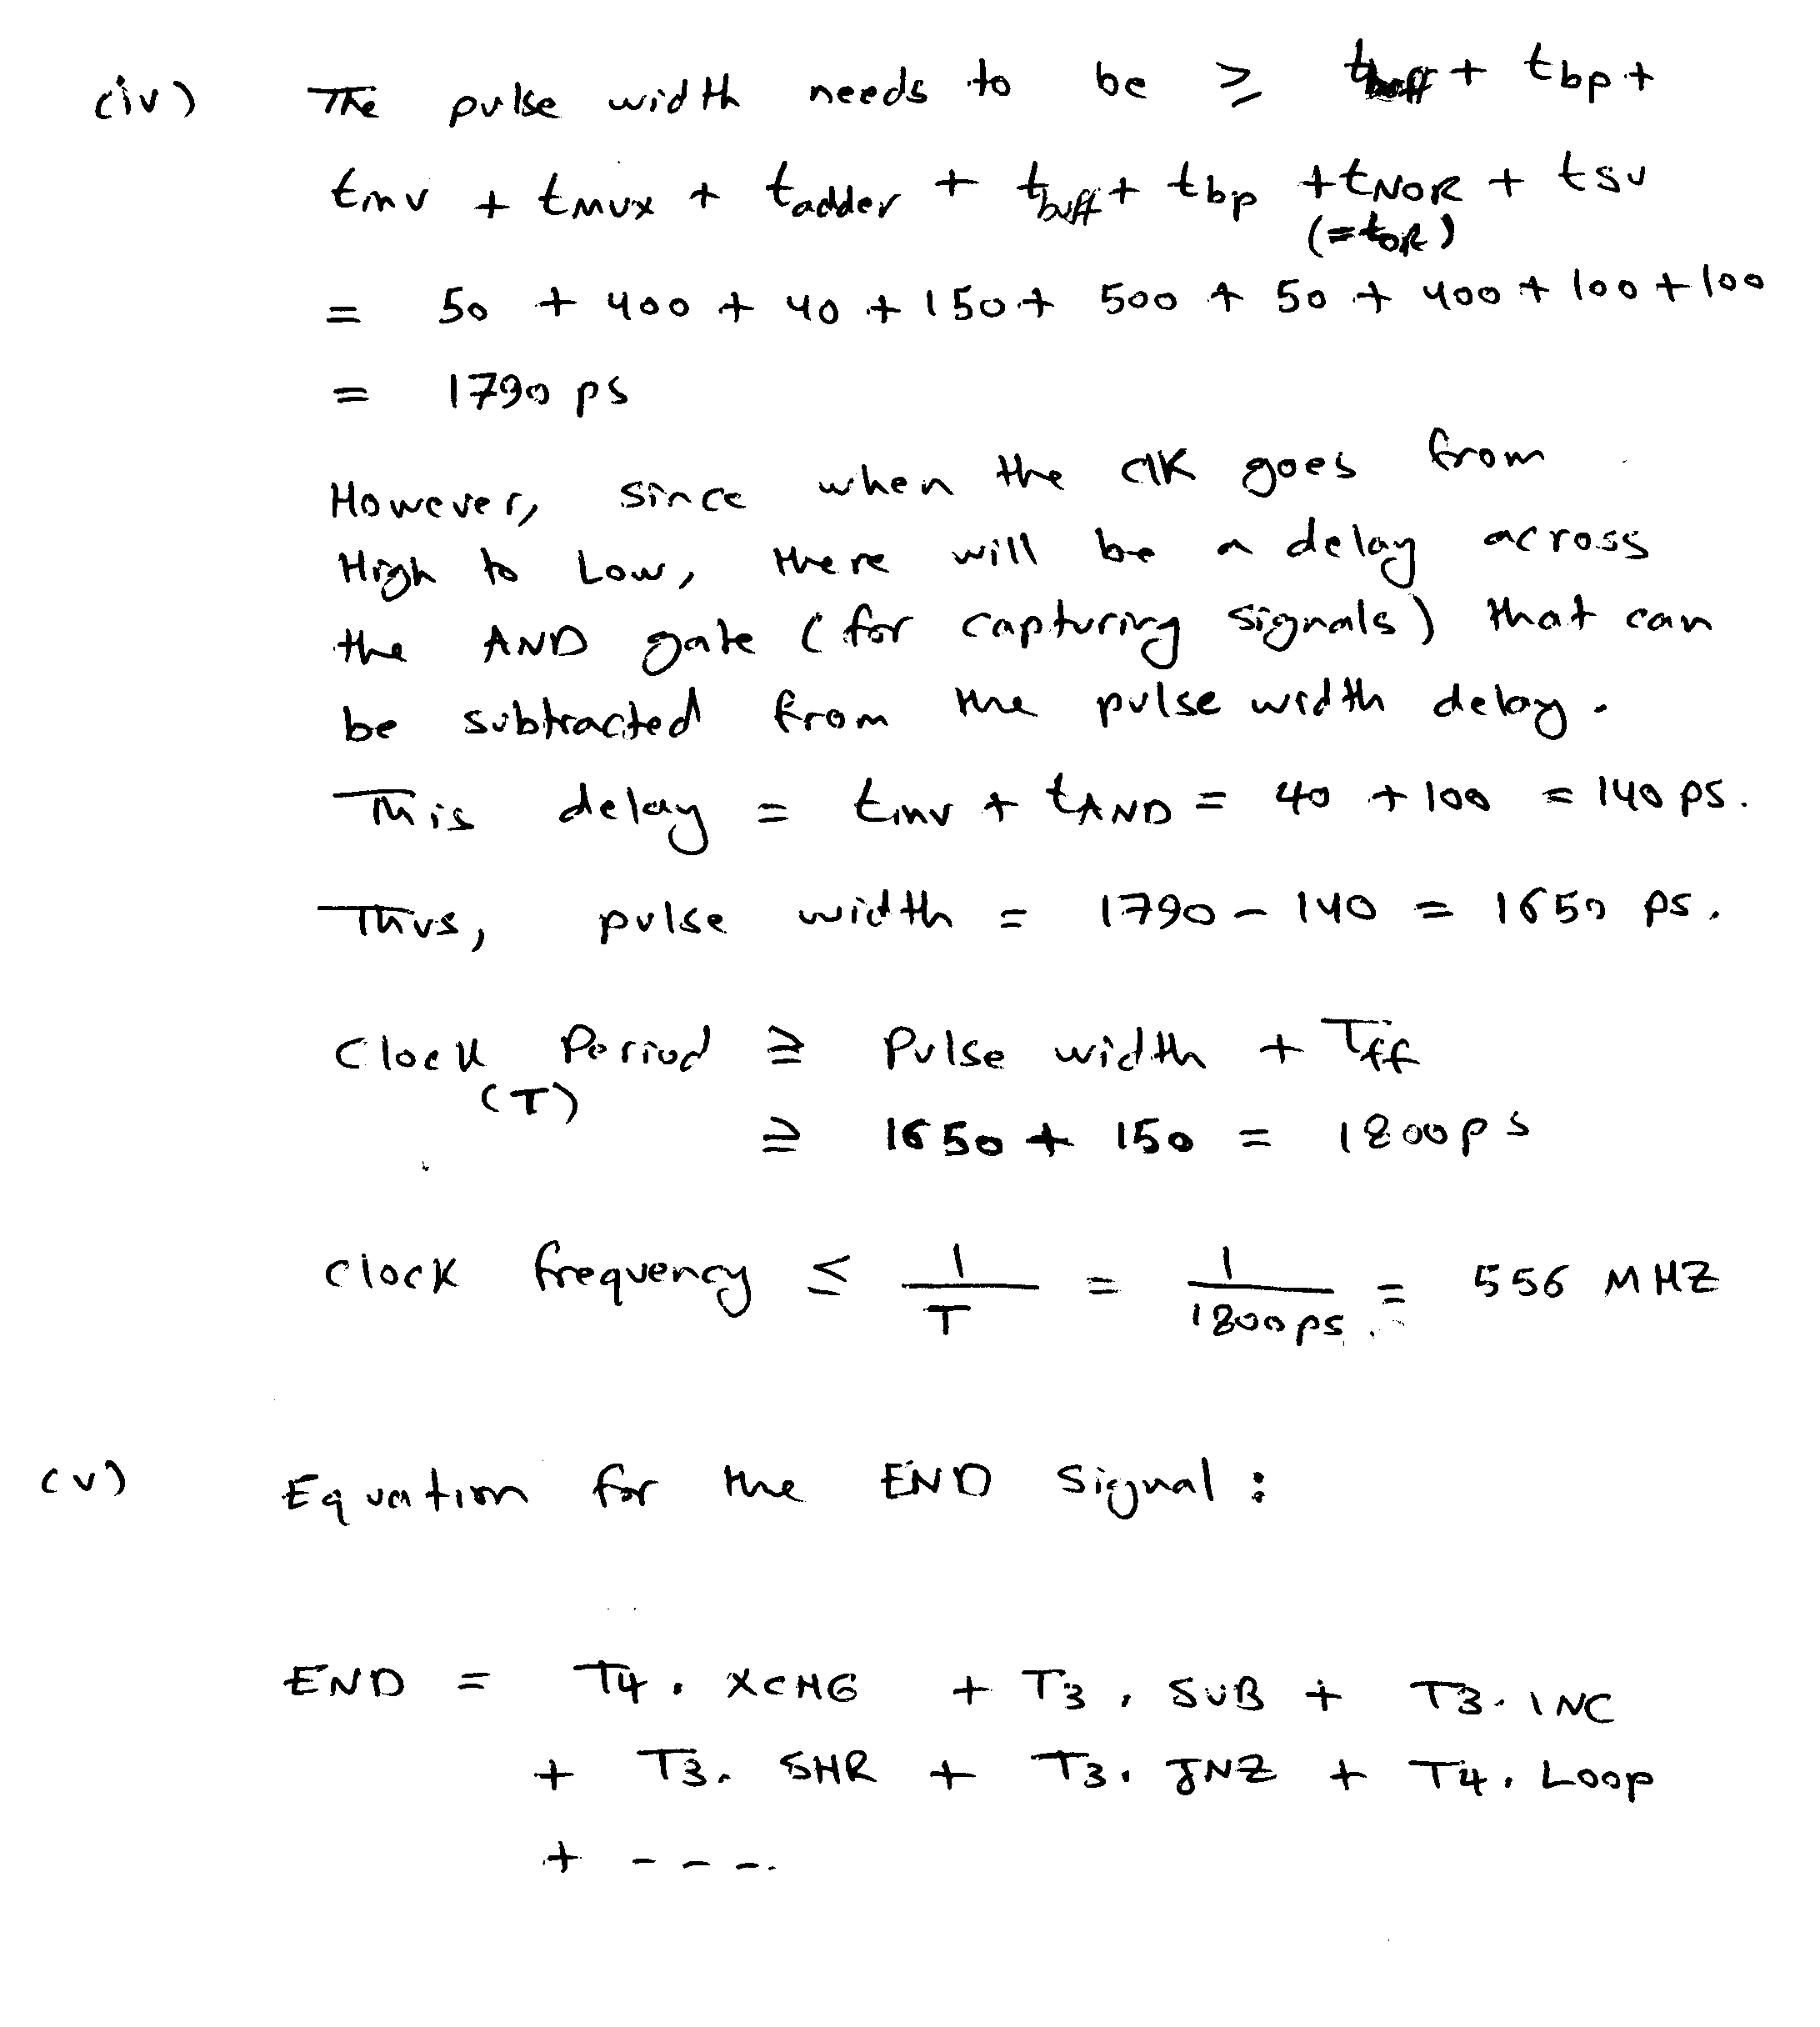 (iv) The pulse width needs to be ≥ tbuff + tbp +
tinv + tmux + tadder + tbuff + tbp + tNOR + tsu
(= tOR)
= 50 + 400 + 40 + 150 + 500 + 50 + 400 + 100 + 100
= 1790 ps
However, since when the clk goes from
High to Low, there will be a delay across
the AND gate (for capturing signals) that can
be subtracted from the pulse width delay.
This delay = tinv + tAND = 40 + 100 = 140 ps.
Thus, pulse width = 1790 - 140 = 1650 ps.
Clock Period ≥ Pulse width + Tff
(T)
≥ 1650 + 150 = 1800 ps
Clock frequency ≤ 1/T = 1/1800ps = 556 MHZ
(v) Equation for the END Signal :
END = T4. XCHG + T3. SUB + T3. INC
+ T3. SHR + T3. JNZ + T4. Loop
+ - - - -